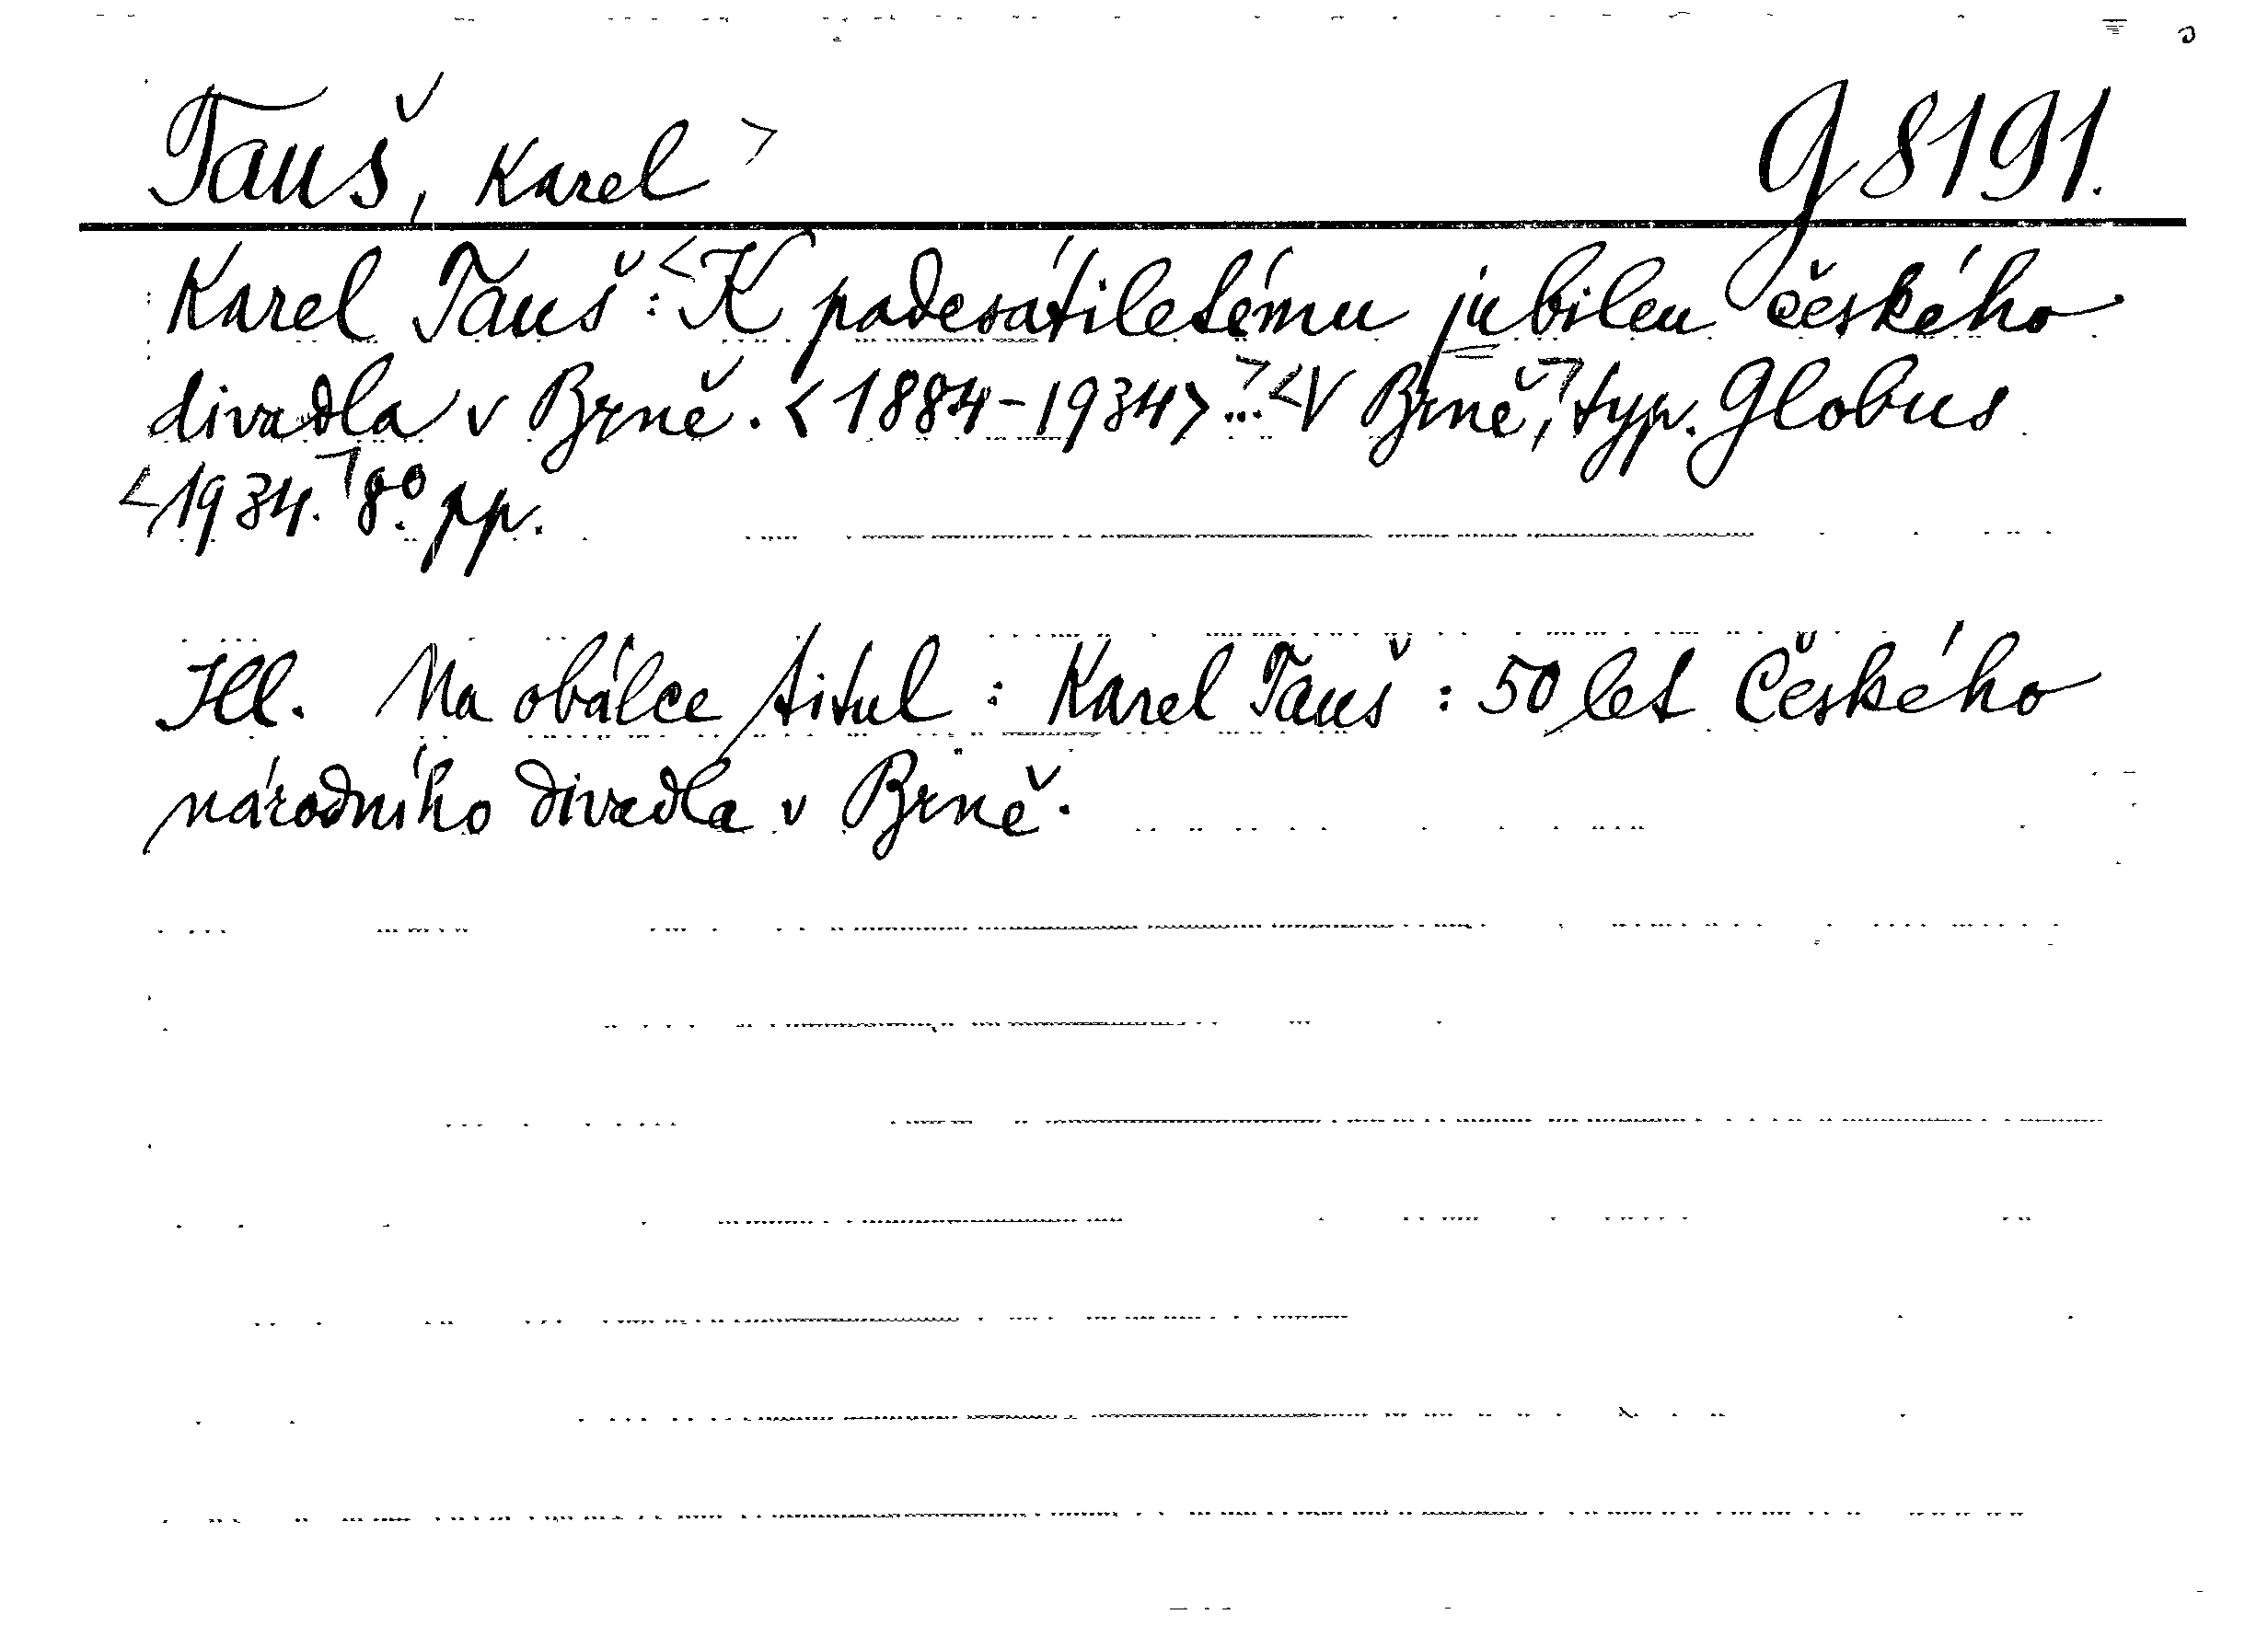 Tauš, Karel > G 8191.
Karel Tauš: <K padesátiletému jubileu českého
divadla v Brně. <1884-1934>> ... <V Brně,> typ. Globus
<1934.> 8º. pp.
Ill. Na obálce titul: Karel Tauš: 50 let Českého
národního divadla v Brně.